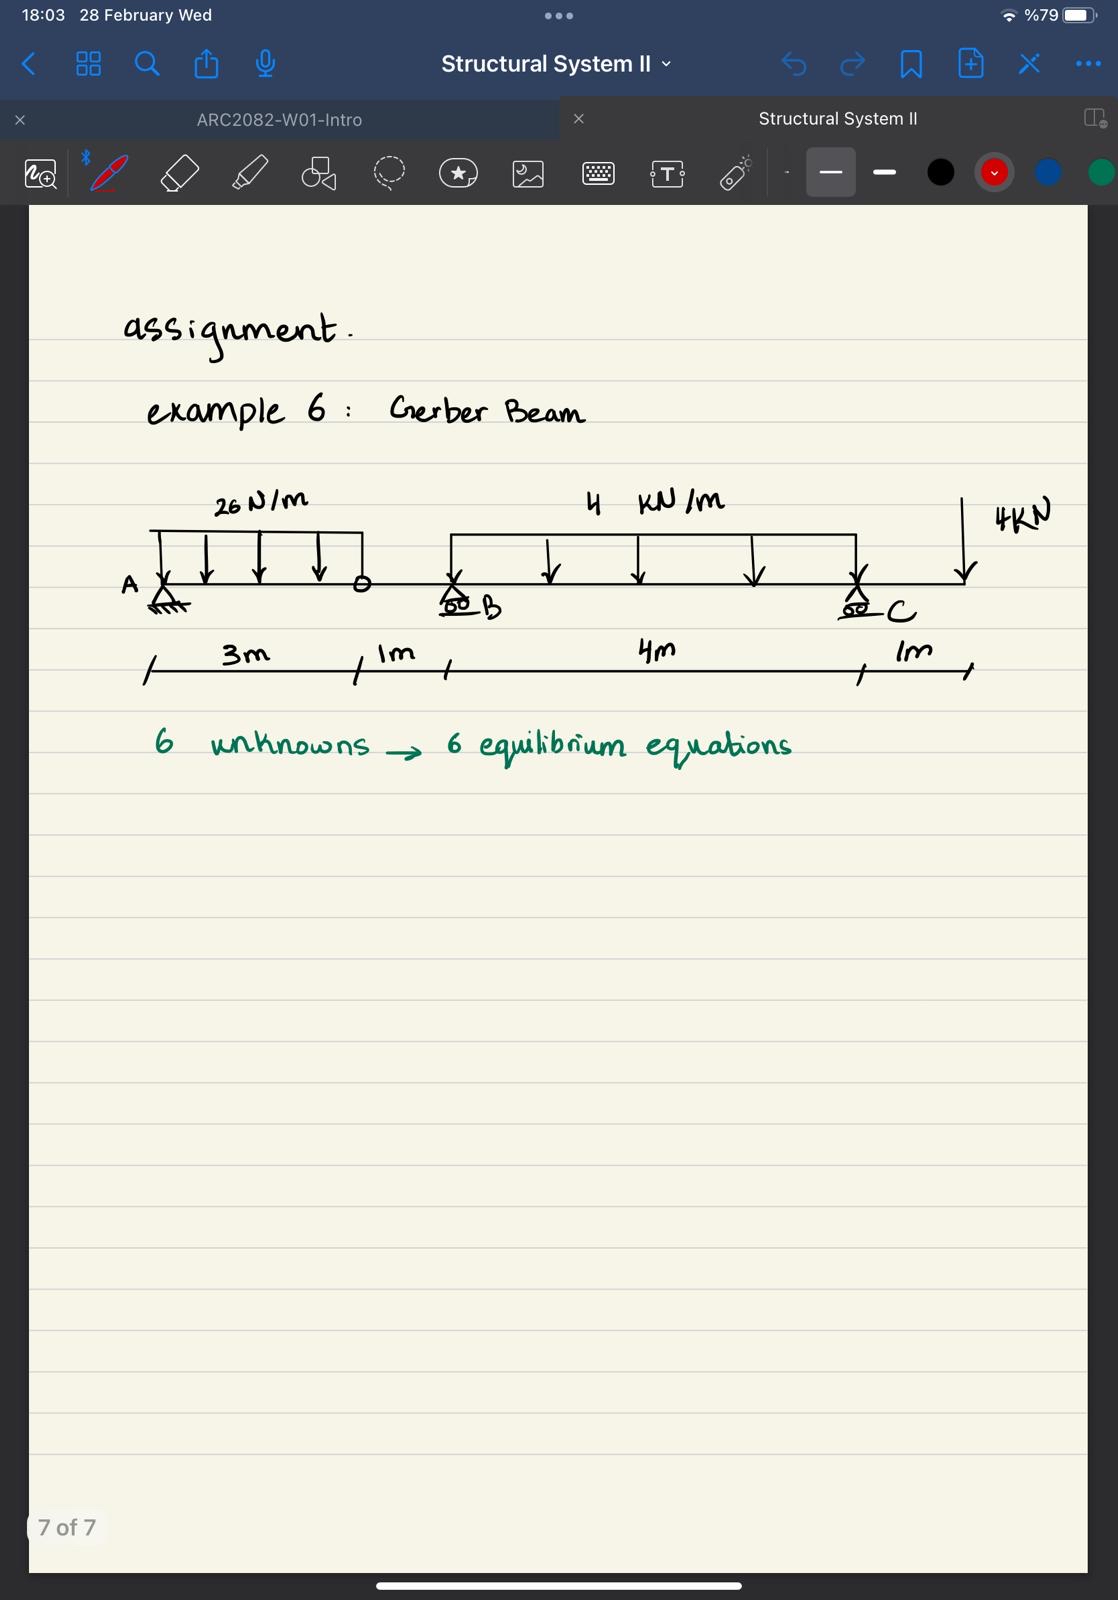 18:03 28 February Wed %79
Structural System II
ARC2082-W01-Intro Structural System II
assignment.
example 6 : Gerber Beam
26 N/m 4 KN/m 4KN
A B C
3m 1m 4m 1m
6 unknowns → 6 equilibrium equations
7 of 7